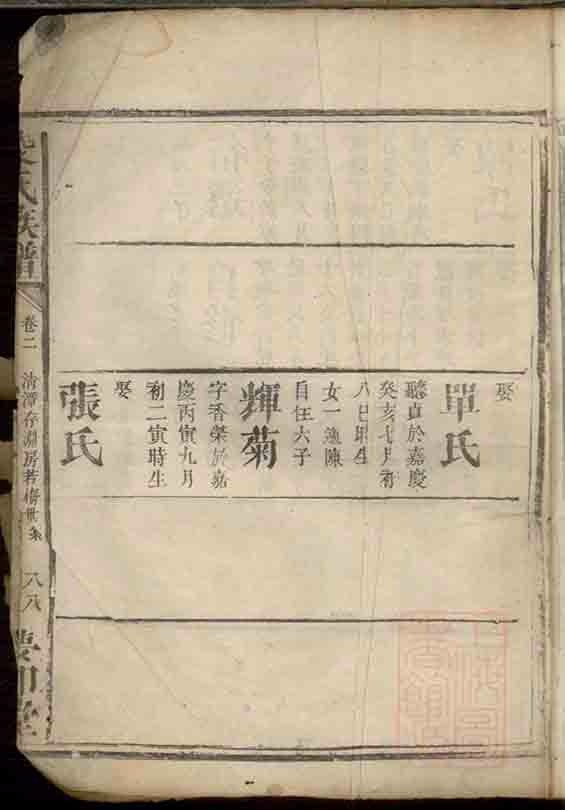 娶
單氏
聽貞於嘉慶
癸亥七月初
八巳時生
女一適陳
自任六子
輝菊
字香榮於嘉
慶丙寅九月
初二寅時生
娶
張氏
氏族譜
卷二
清潭存淵房若梅世系
八八